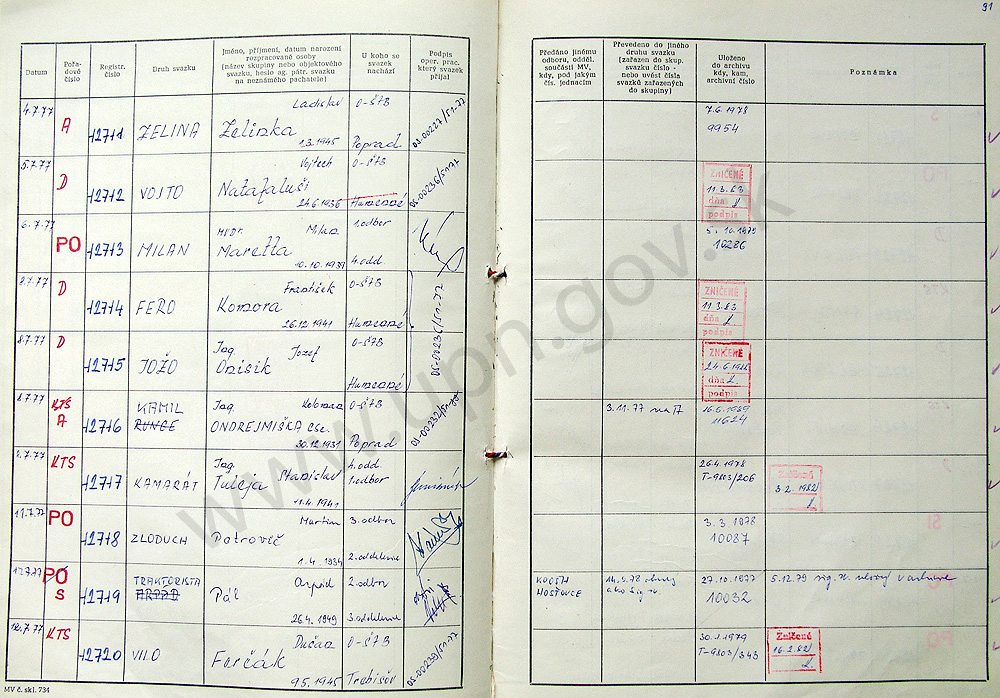 91
Datum
Pořadové číslo
Registr. číslo
Druh svazku
Jméno, příjmení, datum narození rozpracované osoby (název skupiny nebo objektového svazku, heslo ag. pátr. svazku na neznámého pachatele)
U koho se svazek nachází
Podpis oper. prac. který svazek přijal
Předáno jinému odboru, odděl. součásti MV, kdy, pod jakým čís. jednacím
Převedeno do jiného druhu svazku (zařazen do skup. svazku číslo - nebo uvést čísla svazků zařazených do skupiny)
Uloženo do archivu kdy, kam, archivní číslo
Poznámka
4.7.77 A 12711 ZELINA Ladislav Zelinka 1.3.1945 O-ŠTB Poprad OS-00227/S1-77
7.6.1978 9954
5.7.77 D 12712 VOJTO Vojtech Nataf­aluši 24.6.1936 O-ŠTB Humenné OS-00236/S1-77
ZNIČENÉ 11.3.83 dňa podpis
6.7.77 PO 12713 MILAN MVDr. Milan Maretta 10.10.1939 1.odbor 4.odd
5.10.1978 10286
8.7.77 D 12714 FERO František Komora 26.12.1941 O-ŠTB Humenné
ZNIČENÉ 11.3.83 dňa podpis
8.7.77 D 12715 JOŽO Ing. Jozef Onisik O-ŠTB Humenné OS-00236/S1-77
ZNIČENÉ dňa podpis
8.7.77 KTS A 12716 KAMIL Ing. ONDREJMIŠKA CSc. 30.12.1931 O-ŠTB Poprad
3.11.77 na A 16.5.1989 11624
KTS 12717 KAMARÁT Ing. Stanislav Tuleja 11.4.1941 4.odd. 1.odbor
26.4.1978 T-9803/206 3.2.1982
11.7.77 PO 12718 ZLODUCH Martin Petrovič 1.4.1934 3.odbor 2.oddelenie
3.3.1978 10087
12.7.77 PO S 12719 TRAKTORISTA Arpád Pál 26.4.1949 2.odbor 3.oddelenie
HOSŤOVCE 27.10.1977 10032 5.12.79
12.7.77 KTS 12720 VILO Dušan Ferčák 9.5.1945 O-ŠTB Trebišov OS-00239/S1-77
30.1.1979 T-9803/343 Zničené 16.2.82
MV č. skl. 734
www.upn.gov.sk